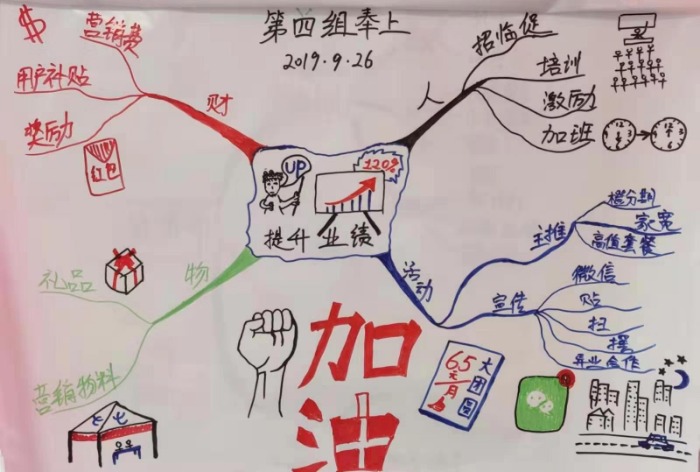 第四组奉上
2019.9.26
$
营销费
用户补贴
奖励
财
红包
招临促
培训
激励
加班
人
UP
120%
提升业绩
礼品
营销物料
物
活动
主推
橙分期
家宽
高值套餐
宣传
微信
贴
扫
摆
异业合作
加油
大团圆
65元/月